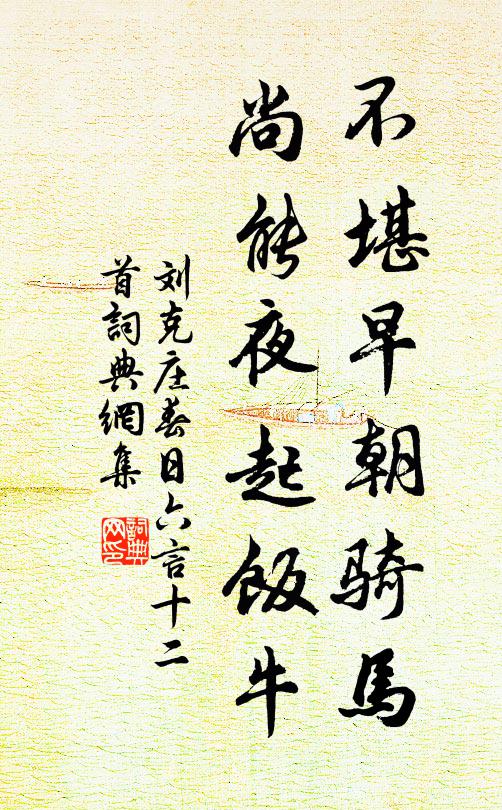 不堪早朝骑馬
尚能夜起飯牛
刘克庄春日六言十二
首詞典網集
詞典网印